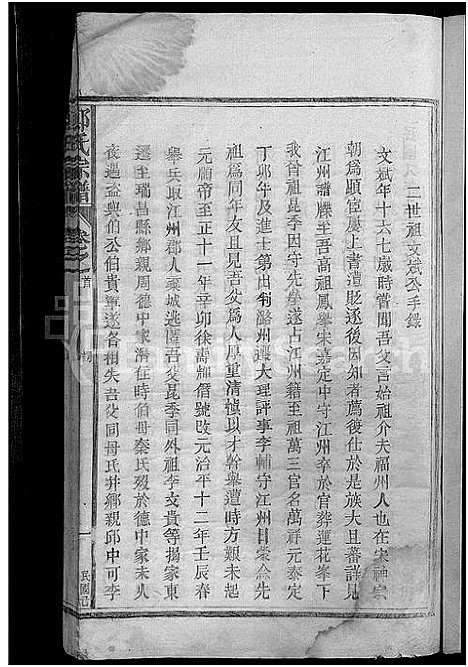 二世祖文斌公手錄
文斌年十六七歲時嘗聞吾父言始祖介夫福州人也在宋神宗
朝為顯宦屢上書遭貶逐後因知者薦復仕於是族大且蕃詳見
江州譜牒至吾高祖鳳舉宋嘉定中守江州卒於官葬蓮花峯下
我曾祖昆季因守先塋遂占江州籍至祖萬三官名萬祥元泰定
丁卯年及進士第出判潞州遷大理評事李輔守江州日嘗念先
祖為同年友且見吾父為人厚重清慎以才幹舉遭時方艱未起
元順帝至正十一年辛卯徐壽輝僭號改元治平十二年壬辰春
舉兵取江州郡人棄城逃匿吾父昆季同外祖李文貴等揭家東
遷至瑞昌縣鄉親周德中家濟在時伯母秦氏歿於德中家未久
夜遇盜與伯公伯貴寧遂各相失吾父同母氏并鄉親邱中可李
鄭氏宗譜
卷之首
一
民國